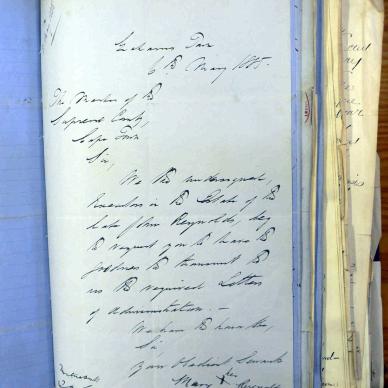 Grahams Town
6th May 1885.
The Master of the
Supreme Court,
Cape Town
Sir,
We the undersigned,
Executors in the Estate of the
late John Reynolds, beg
to request you to have the
goodness to transmit to
us the required Letters
of Administration. —
We have the honor to be,
Sir,
Your Obedient Servants
Mary X Reynolds
her